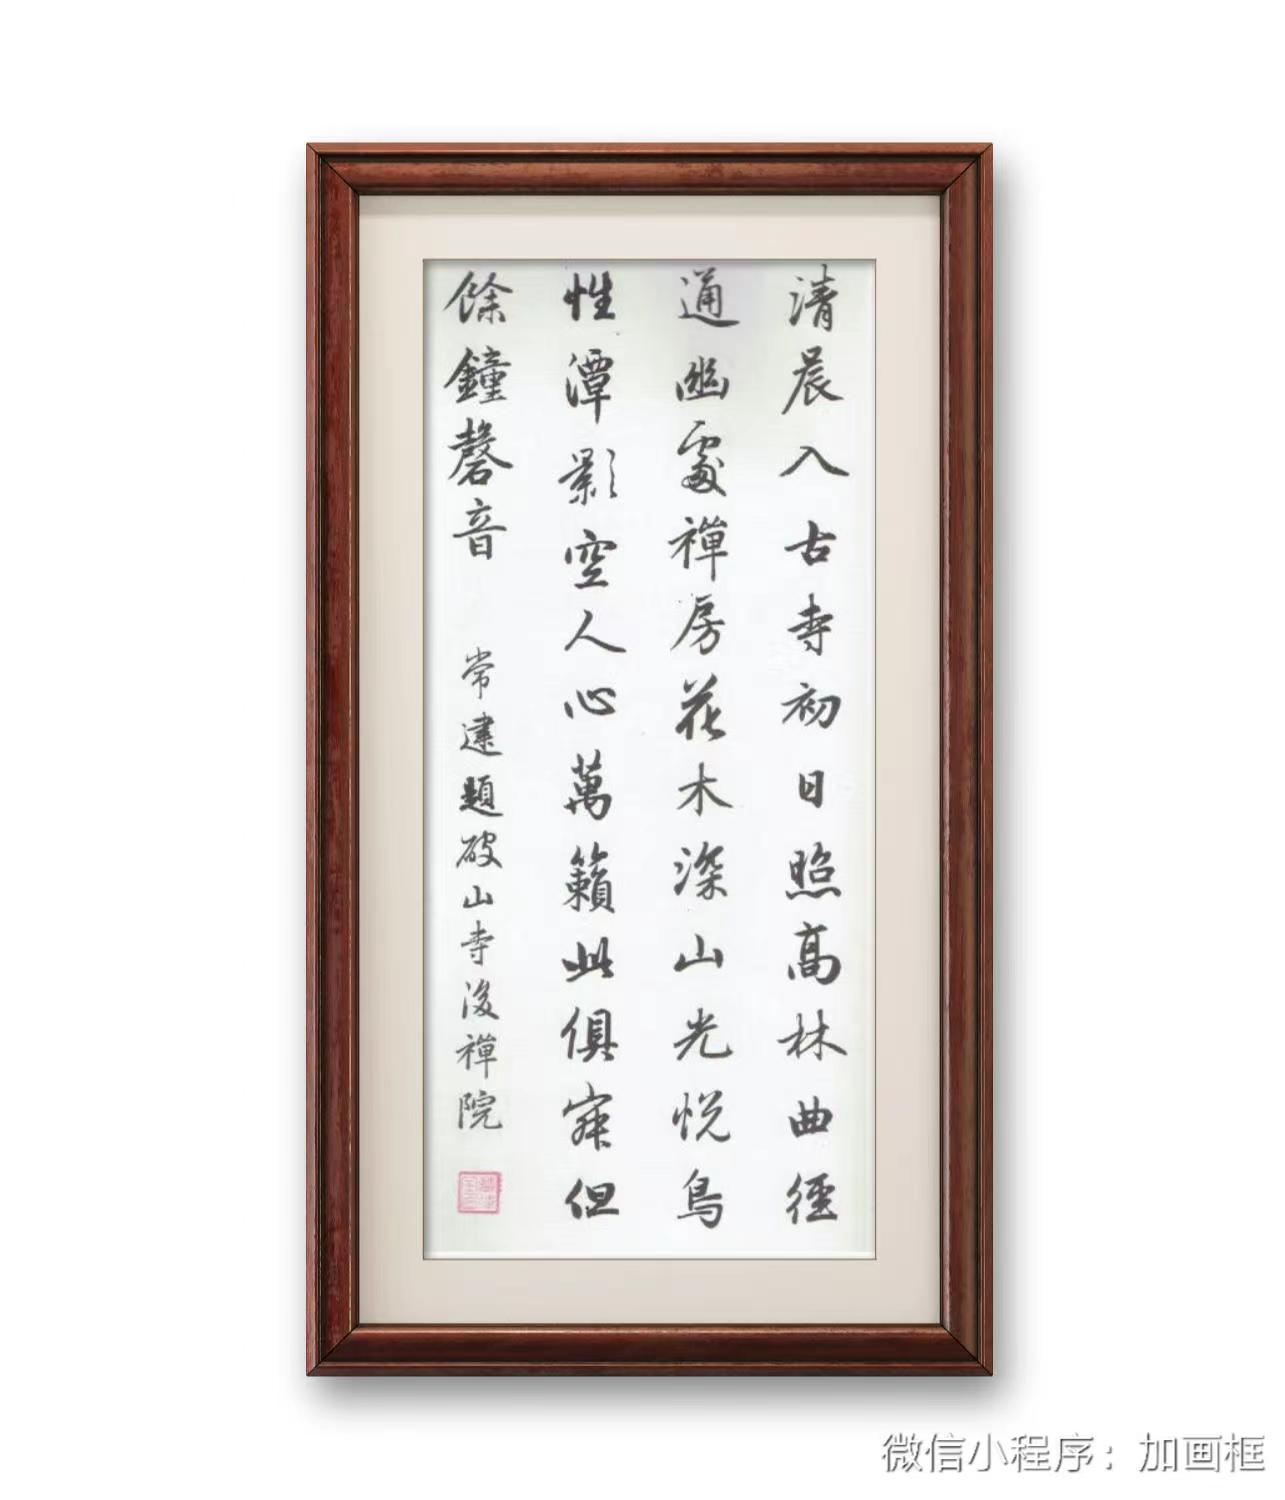 清晨入古寺初日照高林曲徑
通幽處禪房花木深山光悅鳥
性潭影空人心萬籟此俱寂但
餘鐘磬音
常建題破山寺後禪院
微信小程序：加画框